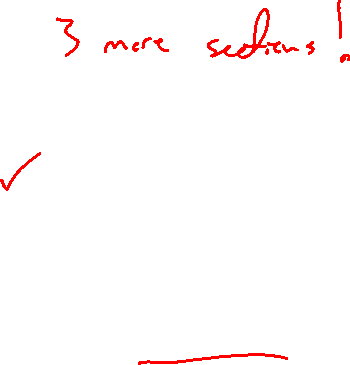 3 more sections!